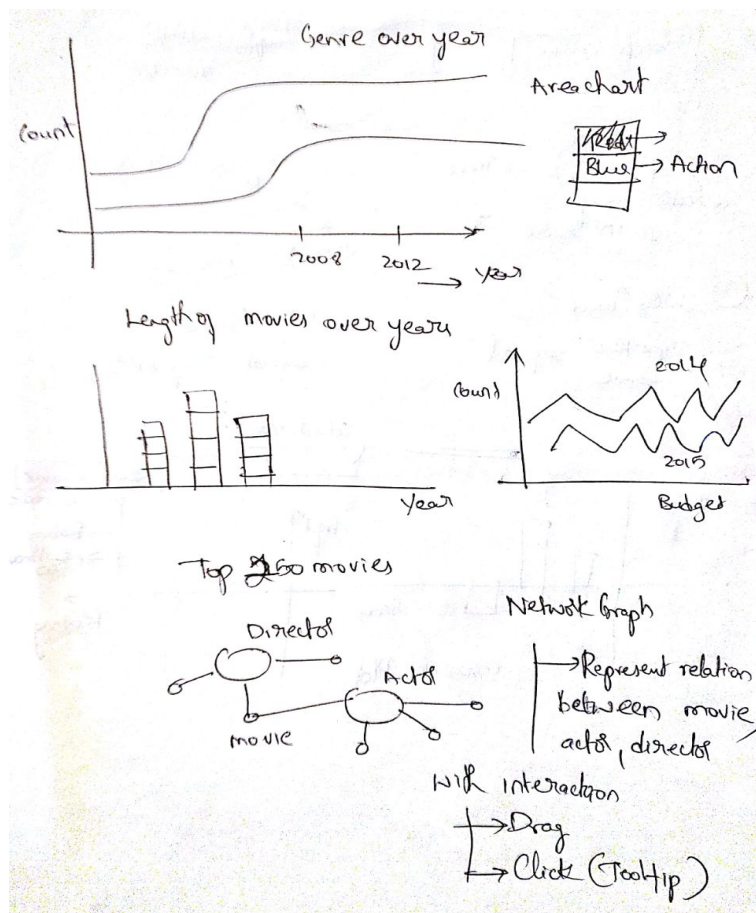 Genre over year
Area chart
Count
Blue → Action
2008 2012
→ Year
Length of movies over years
Count
2014
2015
Year
Budget
Top 250 movies
Network Graph
Director
Actor
movie
→ Represent relation
between movie
actor, director
With interaction
→ Drag
→ Click (Tooltip)